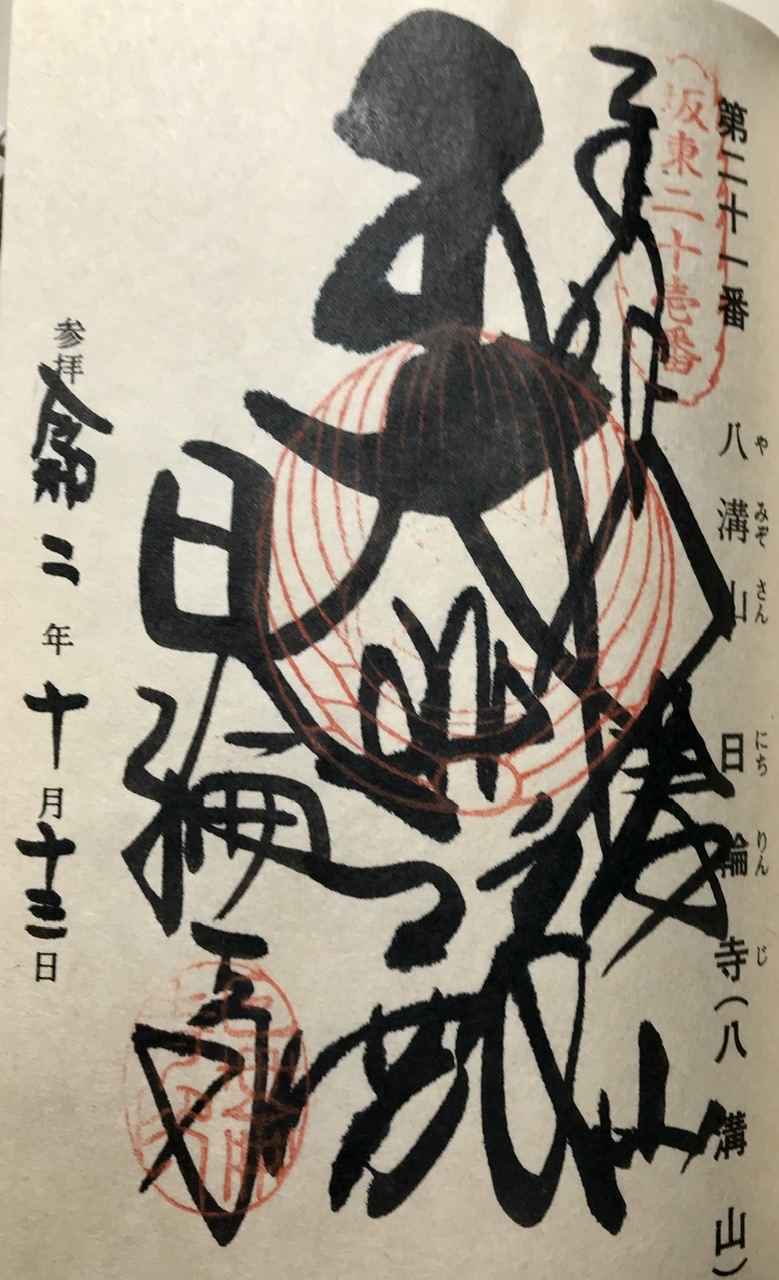 第二十一番 八溝山 日輪寺(八溝山)
や みぞ さん にち りん じ
坂東二十壱番
奉拝 八溝山
大悲殿
日輪寺
参拝 令和二年十月十三日